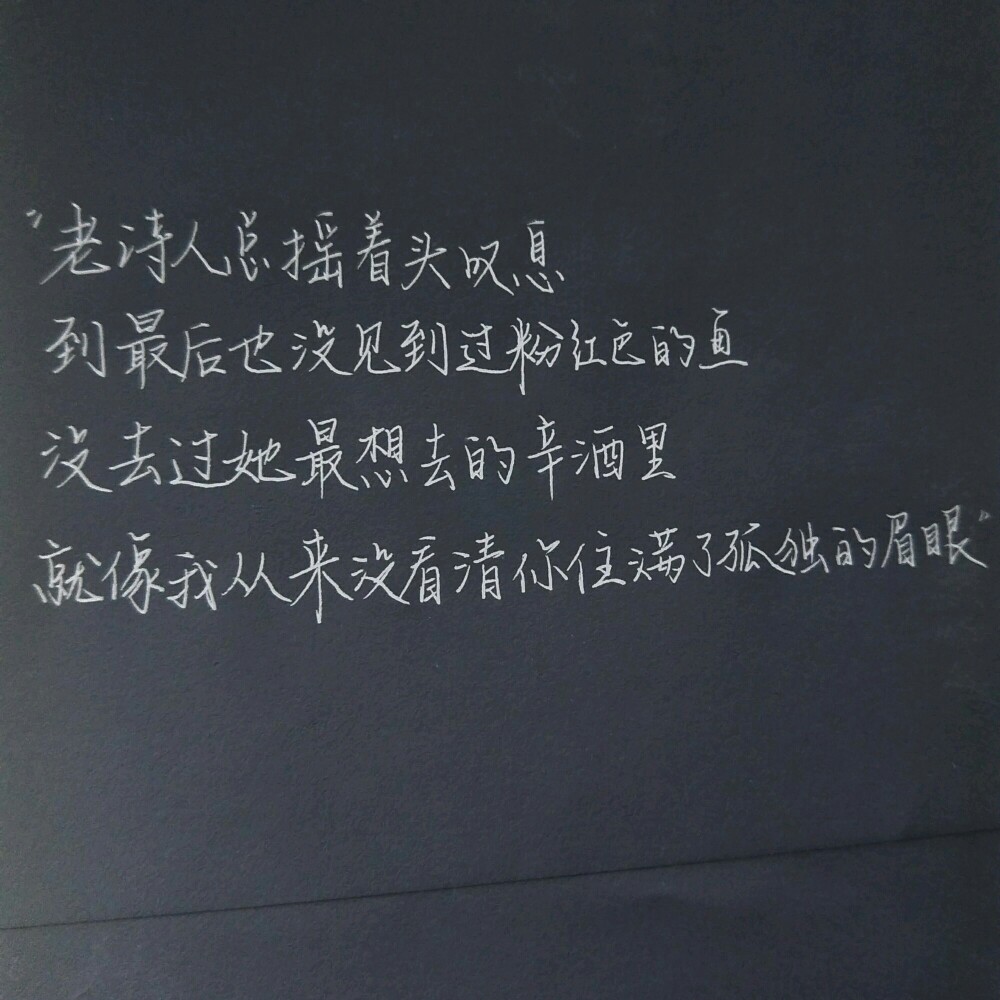 “老诗人总摇着头叹息
到最后也没见到过粉红色的鱼
没去过她最想去的辛酒里
就像我从来没看清你住满了孤独的眉眼”